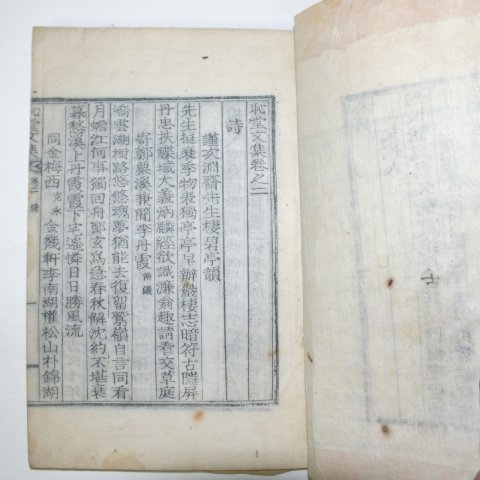 恥堂文集卷之二
詩
謹次淵齋先生棲碧亭韻
先生挺秉季物表獨亭亭早辦巖棲志暗符古隱屏
丹忠扶蝶域大義炳麟經欲識濂翁趣請看交草庭
寄鄭栗溪兼簡李丹霞
嶠雲湖樹路悠悠魂夢猶能去復留鷲嶺自言同看
月蟾江何事獨回舟鄭玄寓急春秋解沈約不堪衰
暮愁溪上丹霞霞下宅遙憐日日勝風流
同金梅西 克永 金幾軒李南湖權松山朴錦湖
恥堂文集 卷二 詩